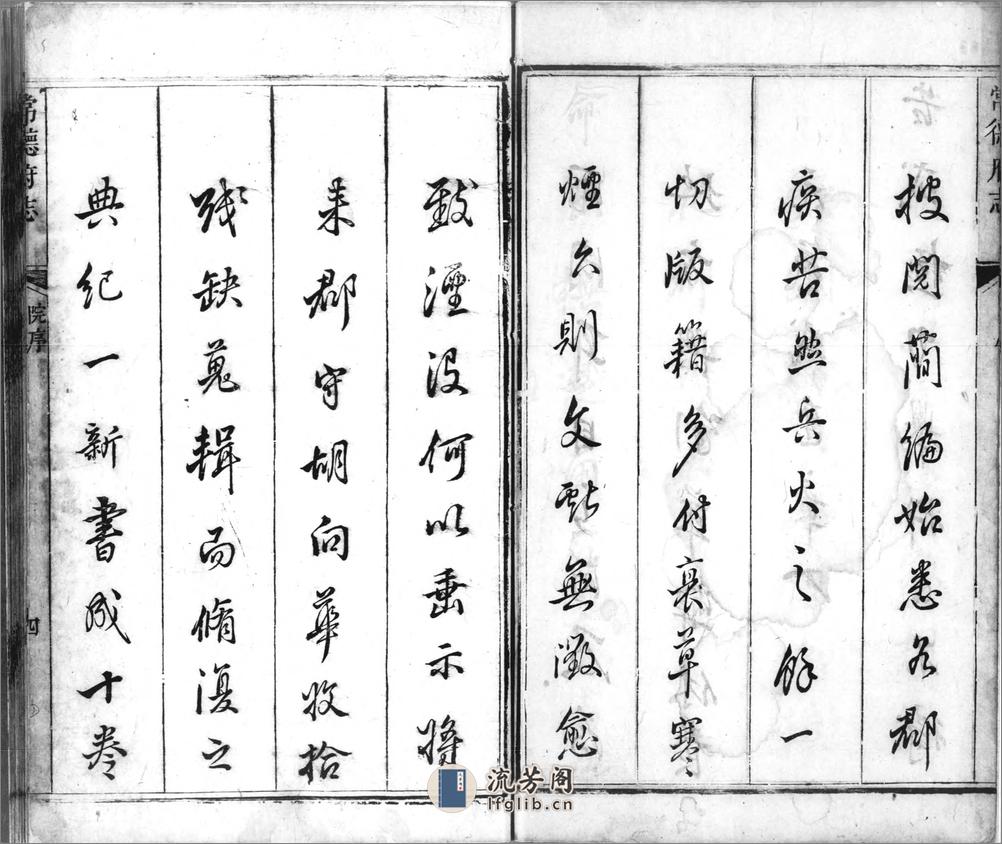 披閱蕳編始悉各郡
疾苦然兵火之餘一
切版籍多付衰草寒
煙今則文獻無徵愈
致湮没何以垂示將
来郡守胡向華收拾
殘缺蒐輯而脩復之
典紀一新書成十卷
常德府志
院序
四
流芳阁
lfglib.cn